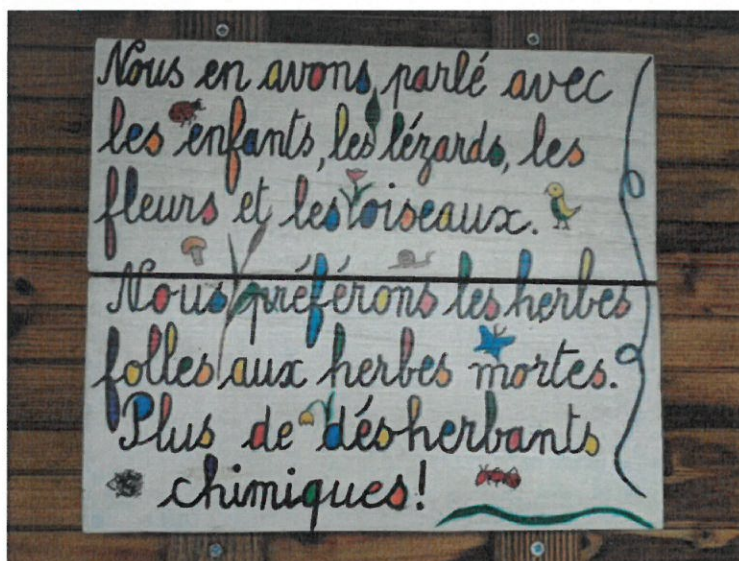 Nous en avons parlé avec
les enfants, les lézards, les
fleurs et les oiseaux.
Nous préférons les herbes
folles aux herbes mortes.
Plus de désherbants
chimiques!